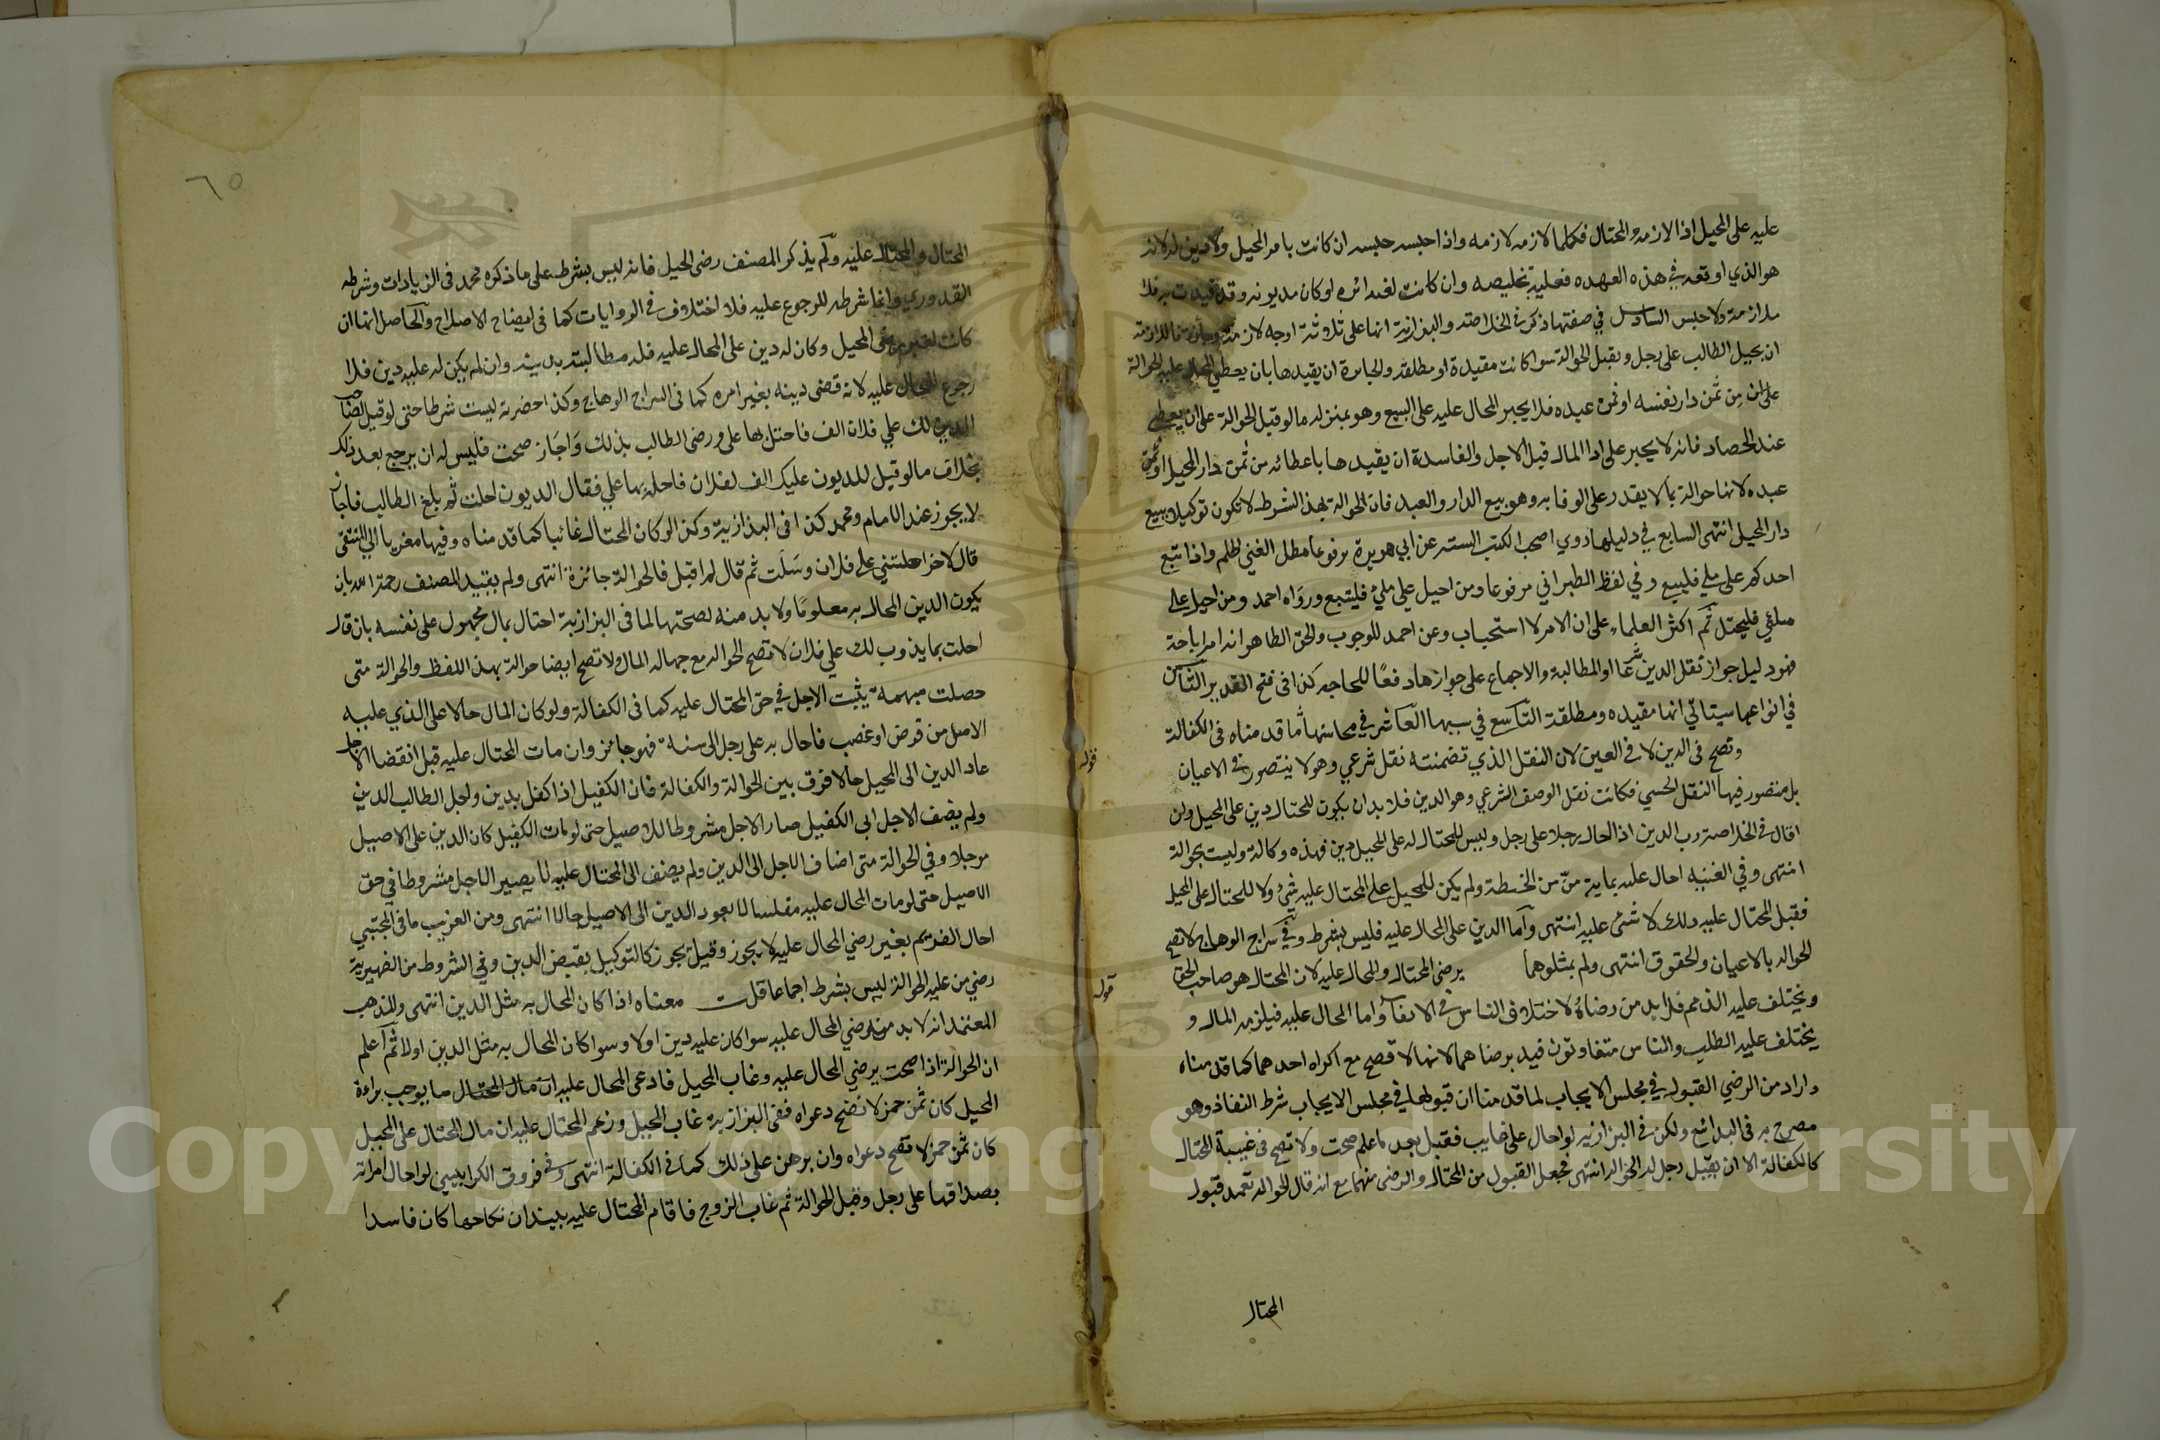 عليه على المحيل اذا لازمه المحتال فكلما لازمه لازمه واذا حبسه حبسه ان كانت بامر المحيل ولا دين له لانه
هو الذي اوقعه في هذه العهده فعليه تخليصه وان كانت لغير امره او كان مديونه وقد قيدت به فلا
ملازمة ولا حبس السادس في صفتها ذكر في الخلاصة والبزازية انها على ثلاثة اوجه لازمة وجائزة فاللازمة
ان يحيل الطالب على رجل ويقبل الحوالة سوا كانت مقيدة او مطلقة والجايزة ان يقيدها بان يعطي المحال عليه الحوالة
على ان من ثمن دار نفسه او ثمن عبده فلا يجبر المحال عليه على البيع وهو بمنزله ما لو قبل الحوالة على ان يعطي
عند الحصاد فانه لا يجبر على ادا المال قبل الاجل والفاسدة ان يقيدها باعطائه من ثمن دار المحيل او ثمن
عبده لانها حوالة بما لا يقدر على الوفا به وهو بيع الدار والعبد فان الحوالة بهذا الشرط لا تكون توكيلا ببيع
دار المحيل انتهى السابع في دليلها روي اصحاب الكتب الستة عن ابي هريرة مرفوعا مطل الغني ظلم واذا تبع
احدكم على ملي فليتبع وفي لفظ الطبراني مرفوعا ومن احيل علي ملي فليتبع ورواه احمد ومن احيل على
ملي فليحتل ثم اكثر العلماء على ان الامر لا استحباب وعن احمد للوجوب والحق الظاهر انه امر اباحة
فهو دليل جواز نقل الدين شرعا او المطالبة والاجماع على جوازها دفعا للحاجه كذا في فتح القدير الثامن
في انواعها سيتاتي انها مقيده ومطلقة التاسع في سببها العاشر في محاسنها ما قدمناه في الكفالة
وتصح في الدين لا في العين لان النقل الذي تضمنته نقل شرعي وهو لا يتصور في الاعيان
بل متصور فيها النقل الحسي فكانت نقل الوصف الشرعي وهو الدين فلا بد ان يكون للمحتال دين على المحيل ولن
اقال في الخلاصة رب الدين اذا احال رجلا على رجل وليس للمحتال له على المحيل دين فهذه وكالة وليست بحوالة
انتهى وفي القنيه احال عليه بماية من من الحنطة ولم يكن للمحيل على المحتال عليه شي ولا للمحتال على المحيل
فقبل المحتال عليه ذلك لا شي عليه انتهى واما الدين على المحال عليه فليس بشرط وفي سراج الوهاج لا تصح
الحواله بالاعيان والحقوق انتهى ولم يمثلوهما يرضى المحتال والمحال عليه لان المحتال هو صاحب الحق
ويختلف عليه الذمم فلا بد من رضاه لاختلاف الناس في الايفا واما المحال عليه فيلزمه المال و
يختلف عليه الطلب والناس متفاوتون قيد برضاهما لانها لا تصح مع اكراه احدهما كما قدمناه
واراد من الرضي القبول في مجلس الايجاب لما قدمنا ان قبولها في مجلس الايجاب شرط النفاذ وهو
مصرح به في البدائع ولكن في البزازيه لو احال على غايب فقبل بعد ما علم صحت ولا تصح في غيبة المحتال
كالكفالة الا ان يقبل رجل له الحواله انتهى فجعل القبول من المحتال والرضى منهما مع انه قال الحواله تعتمد قبول
المحتال
قوله
قوله
٦٥
المحتال والمحتال عليه ولم يذكر المصنف رضى المحيل فانه ليس بشرط على ما ذكره محمد في الزيادات وشرطه
القدوري وانما شرطه للرجوع عليه فلا اختلاف في الروايات كما في ايضاح الاصلاح والحاصل انها ان
كانت لغير رضى المحيل وكان له دين على المحال عليه فله مطالبته بدينه وان لم يكن له عليه دين فلا
رجوع للمحال عليه لانه قضى دينه بغير امره كما في السراج الوهاج وكذا حضرته ليست شرطا حتى لو قيل لصاحب
الدين لك علي فلان الف فاحتل بها على ورضى الطالب بذلك واجاز صحت فليس له ان يرجع بعد ذلك
بخلاف ما لو قيل للمديون عليك الف لفلان فاحله بها علي فقال المديون احلت ثم بلغ الطالب فاجاز
لا يجوز عند الامام ومحمد كذا في البزازيه وكذا لو كان المحتال غائبا كما قدمناه وفيها معزيا الي المنتقى
قال لاخر احلتني على فلان وسكت ثم قال لم اقبل فالحوالة جائزة انتهى ولم يقيد المصنف رحمه الله بان
يكون الدين المحال به معلوما ولا بد منه لصحتها لما في البزازية احتال بمال مجهول على نفسه بان قال
احلت بما يذوب لك علي فلان لا تصح الحواله مع جهالة المال ولا تصح ايضا حوالة بهذا اللفظ والحوالة متى
حصلت مبهمة يثبت الاجل في حق المحتال عليه كما في الكفالة ولو كان المال حالا على الذي عليه
الاصل من قرض او غصب فاحال به على رجل الى سنة فهو جائز وان مات المحتال عليه قبل انقضا الاجل
عاد الدين الى المحيل حالا فرق بين الحوالة والكفالة فان الكفيل اذا كفل بدين ولجل الطالب الدين
ولم يضف الاجل الى الكفيل صار الاجل مشروطا للاصيل حتى لو مات الكفيل كان الدين على الاصيل
مؤجلا وفي الحوالة متى اضاف الاجل الى الدين ولم يضف الى المحتال عليه لا يصير الاجل مشروطا في حق
الاصيل حتى لو مات المحال عليه مفلسا لا يعود الدين الى الاصيل حالا انتهى ومن الغريب ما في المجتبي
احال الغريم بغير رضي المحال عليه لا يجوز وقيل يجوز كالتوكيل بقبض الدين وفي الشروط من الظهيرية
رضي من عليه الحوالة ليس بشرط اجماعا قلت معناه اذا كان المحال به مثل الدين انتهى والمذهب
المعتمد انه لا بد من رضي المحال عليه سوا كان عليه دين اولا وسوا كان المحال به مثل الدين اولا ثم اعلم
ان الحوالة اذا صحت برضي المحال عليه وغاب المحيل فادعى المحال عليه ان مال المحتال ما يوجب براءة
المحيل كان ثمن خمر لا تصح دعواه ففى البزازية غاب المحيل وزعم المحتال عليه ان مال المحتال على المحيل
كان ثمن خمر لا تصح دعواه وان برهن على ذلك كما في الكفالة انتهى وفي فروق الكرابيسي لو احال امراته
بصداقها على رجل وقبل الحوالة ثم غاب الزوج فاقام المحتال عليه بينة ان نكاحها كان فاسدا
Copyright © King Saud University